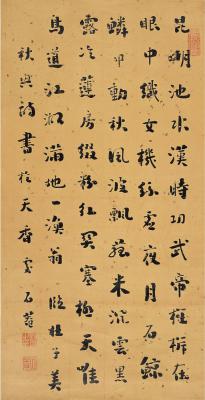 昆明池水漢時功武帝旌旂在
眼中織女機絲虛夜月石鯨
鱗甲動秋風波飄菰米沉雲黑
露冷蓮房墜粉紅關塞極天惟
鳥道江湖滿地一漁翁 杜子美
秋興詩書於天 石菴